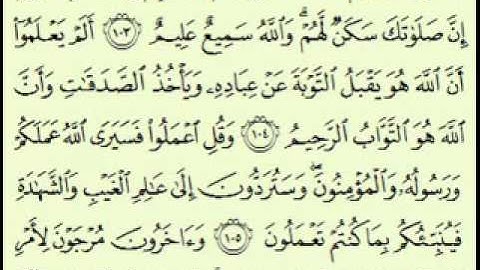 إِنَّ صَلَوٰتَكَ سَكَنٌ لَّهُمْ ۗ وَٱللَّهُ سَمِيعٌ عَلِيمٌ ١٠٣ أَلَمْ يَعْلَمُوٓا۟
أَنَّ ٱللَّهَ هُوَ يَقْبَلُ ٱلتَّوْبَةَ عَنْ عِبَادِهِۦ وَيَأْخُذُ ٱلصَّدَقَـٰتِ وَأَنَّ
ٱللَّهَ هُوَ ٱلتَّوَّابُ ٱلرَّحِيمُ ١٠٤ وَقُلِ ٱعْمَلُوا۟ فَسَيَرَى ٱللَّهُ عَمَلَكُمْ
وَرَسُولُهُۥ وَٱلْمُؤْمِنُونَ ۖ وَسَتُرَدُّونَ إِلَىٰ عَـٰلِمِ ٱلْغَيْبِ وَٱلشَّهَـٰدَةِ
فَيُنَبِّئُكُم بِمَا كُنتُمْ تَعْمَلُونَ ١٠٥ وَءَاخَرُونَ مُرْجَوْنَ لِأَمْرِ